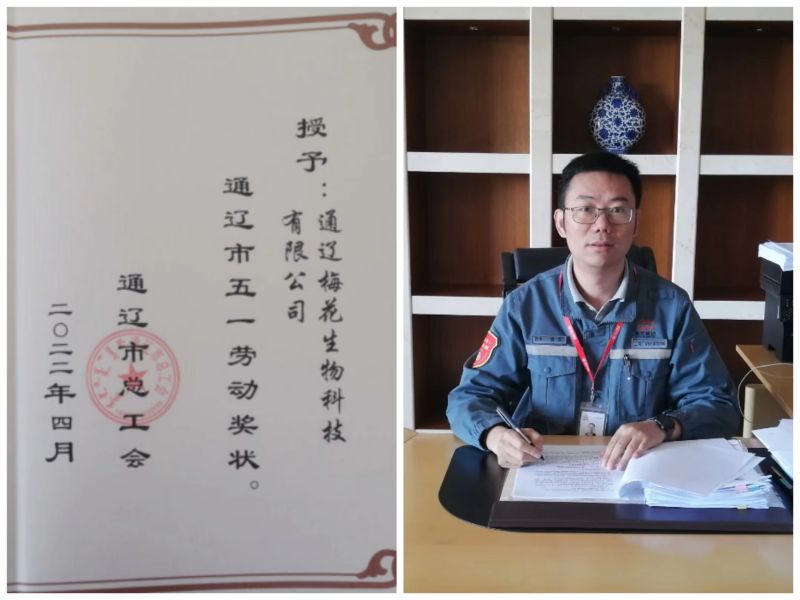 授予：通辽梅花生物科技
有限公司
通辽市五一劳动奖状。
通辽市总工会
二〇二二年四月